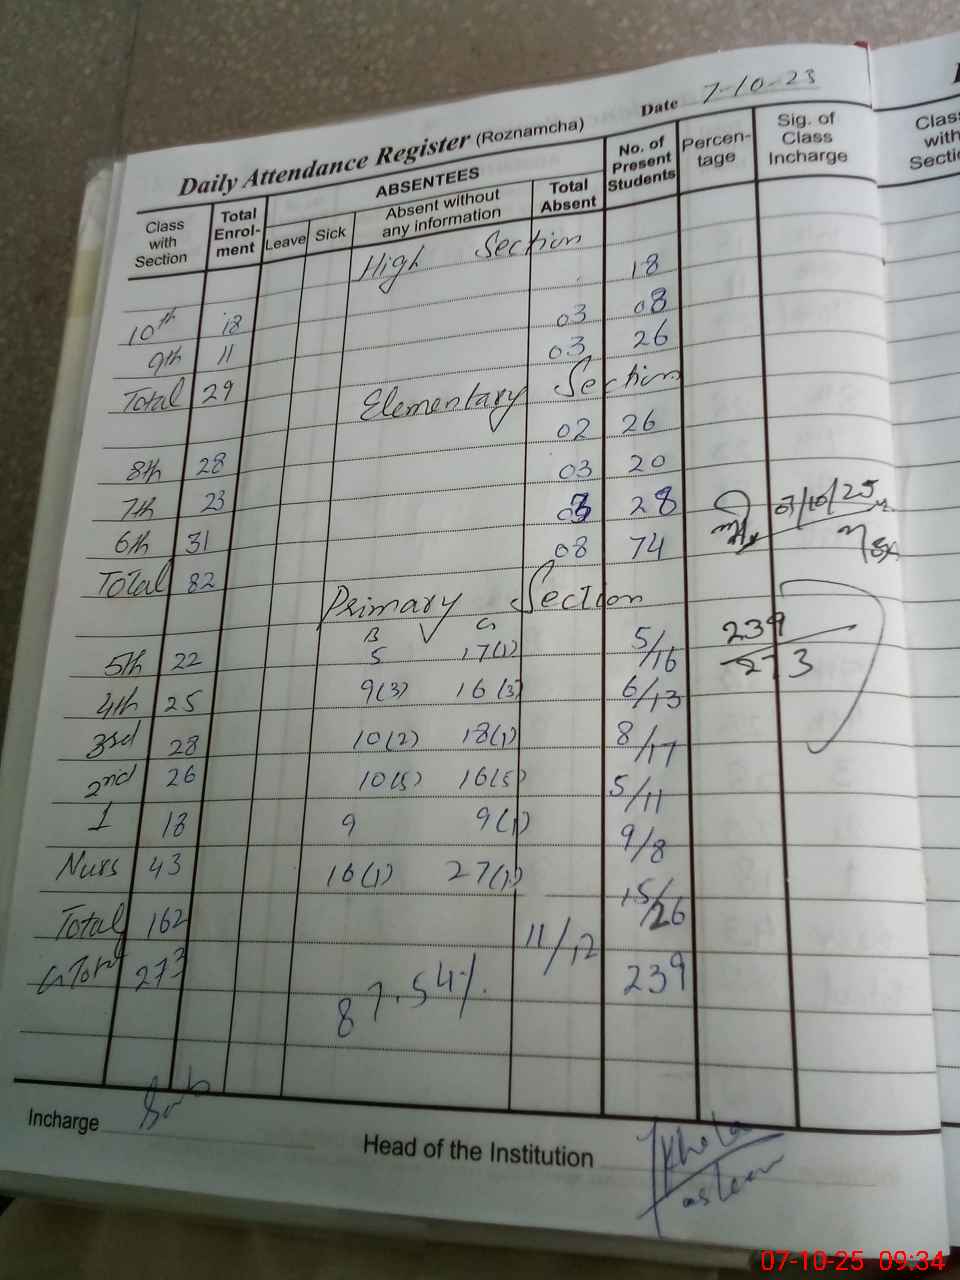 Date 7-10-23
Daily Attendance Register (Roznamcha)
Class with Section | Total Enrol-ment | ABSENTEES | No. of Present Students | Percen-tage | Sig. of Class Incharge
Leave | Sick | Absent without any information | Total Absent
High Section
10th 18 18
9th 11 03 08
Total 29 03 26
Elementary Section
8th 28 02 26
7th 23 03 20
6th 31 03 28
07/10/25
Total 82 08 74
Primary Section
B G
5th 22 5 17(1) 5/16
239/273
4th 25 9(3) 16(3) 6/13
3rd 28 10(2) 18(1) 8/17
2nd 26 10(5) 16(5) 5/11
1 18 9 9(1) 9/8
Nurs 43 16(1) 27(1) 15/26
Total 162 11/12
G Total 273 239
87.54%
Incharge
Head of the Institution
Class with Sectio
07-10-25 09:34